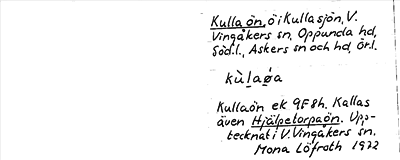 Kullaön, ö i Kullasjön, V.
Vingåkers sn, Oppunda hd,
Söd.l., Askers sn och hd, Örl.
kùl̠aǿ̠a
Kullaön ek 9F8h. Kallas
även Hjälpetorpaön. Upp-
tecknat i V. Vingåkers sn.
Mona Löfroth 1972